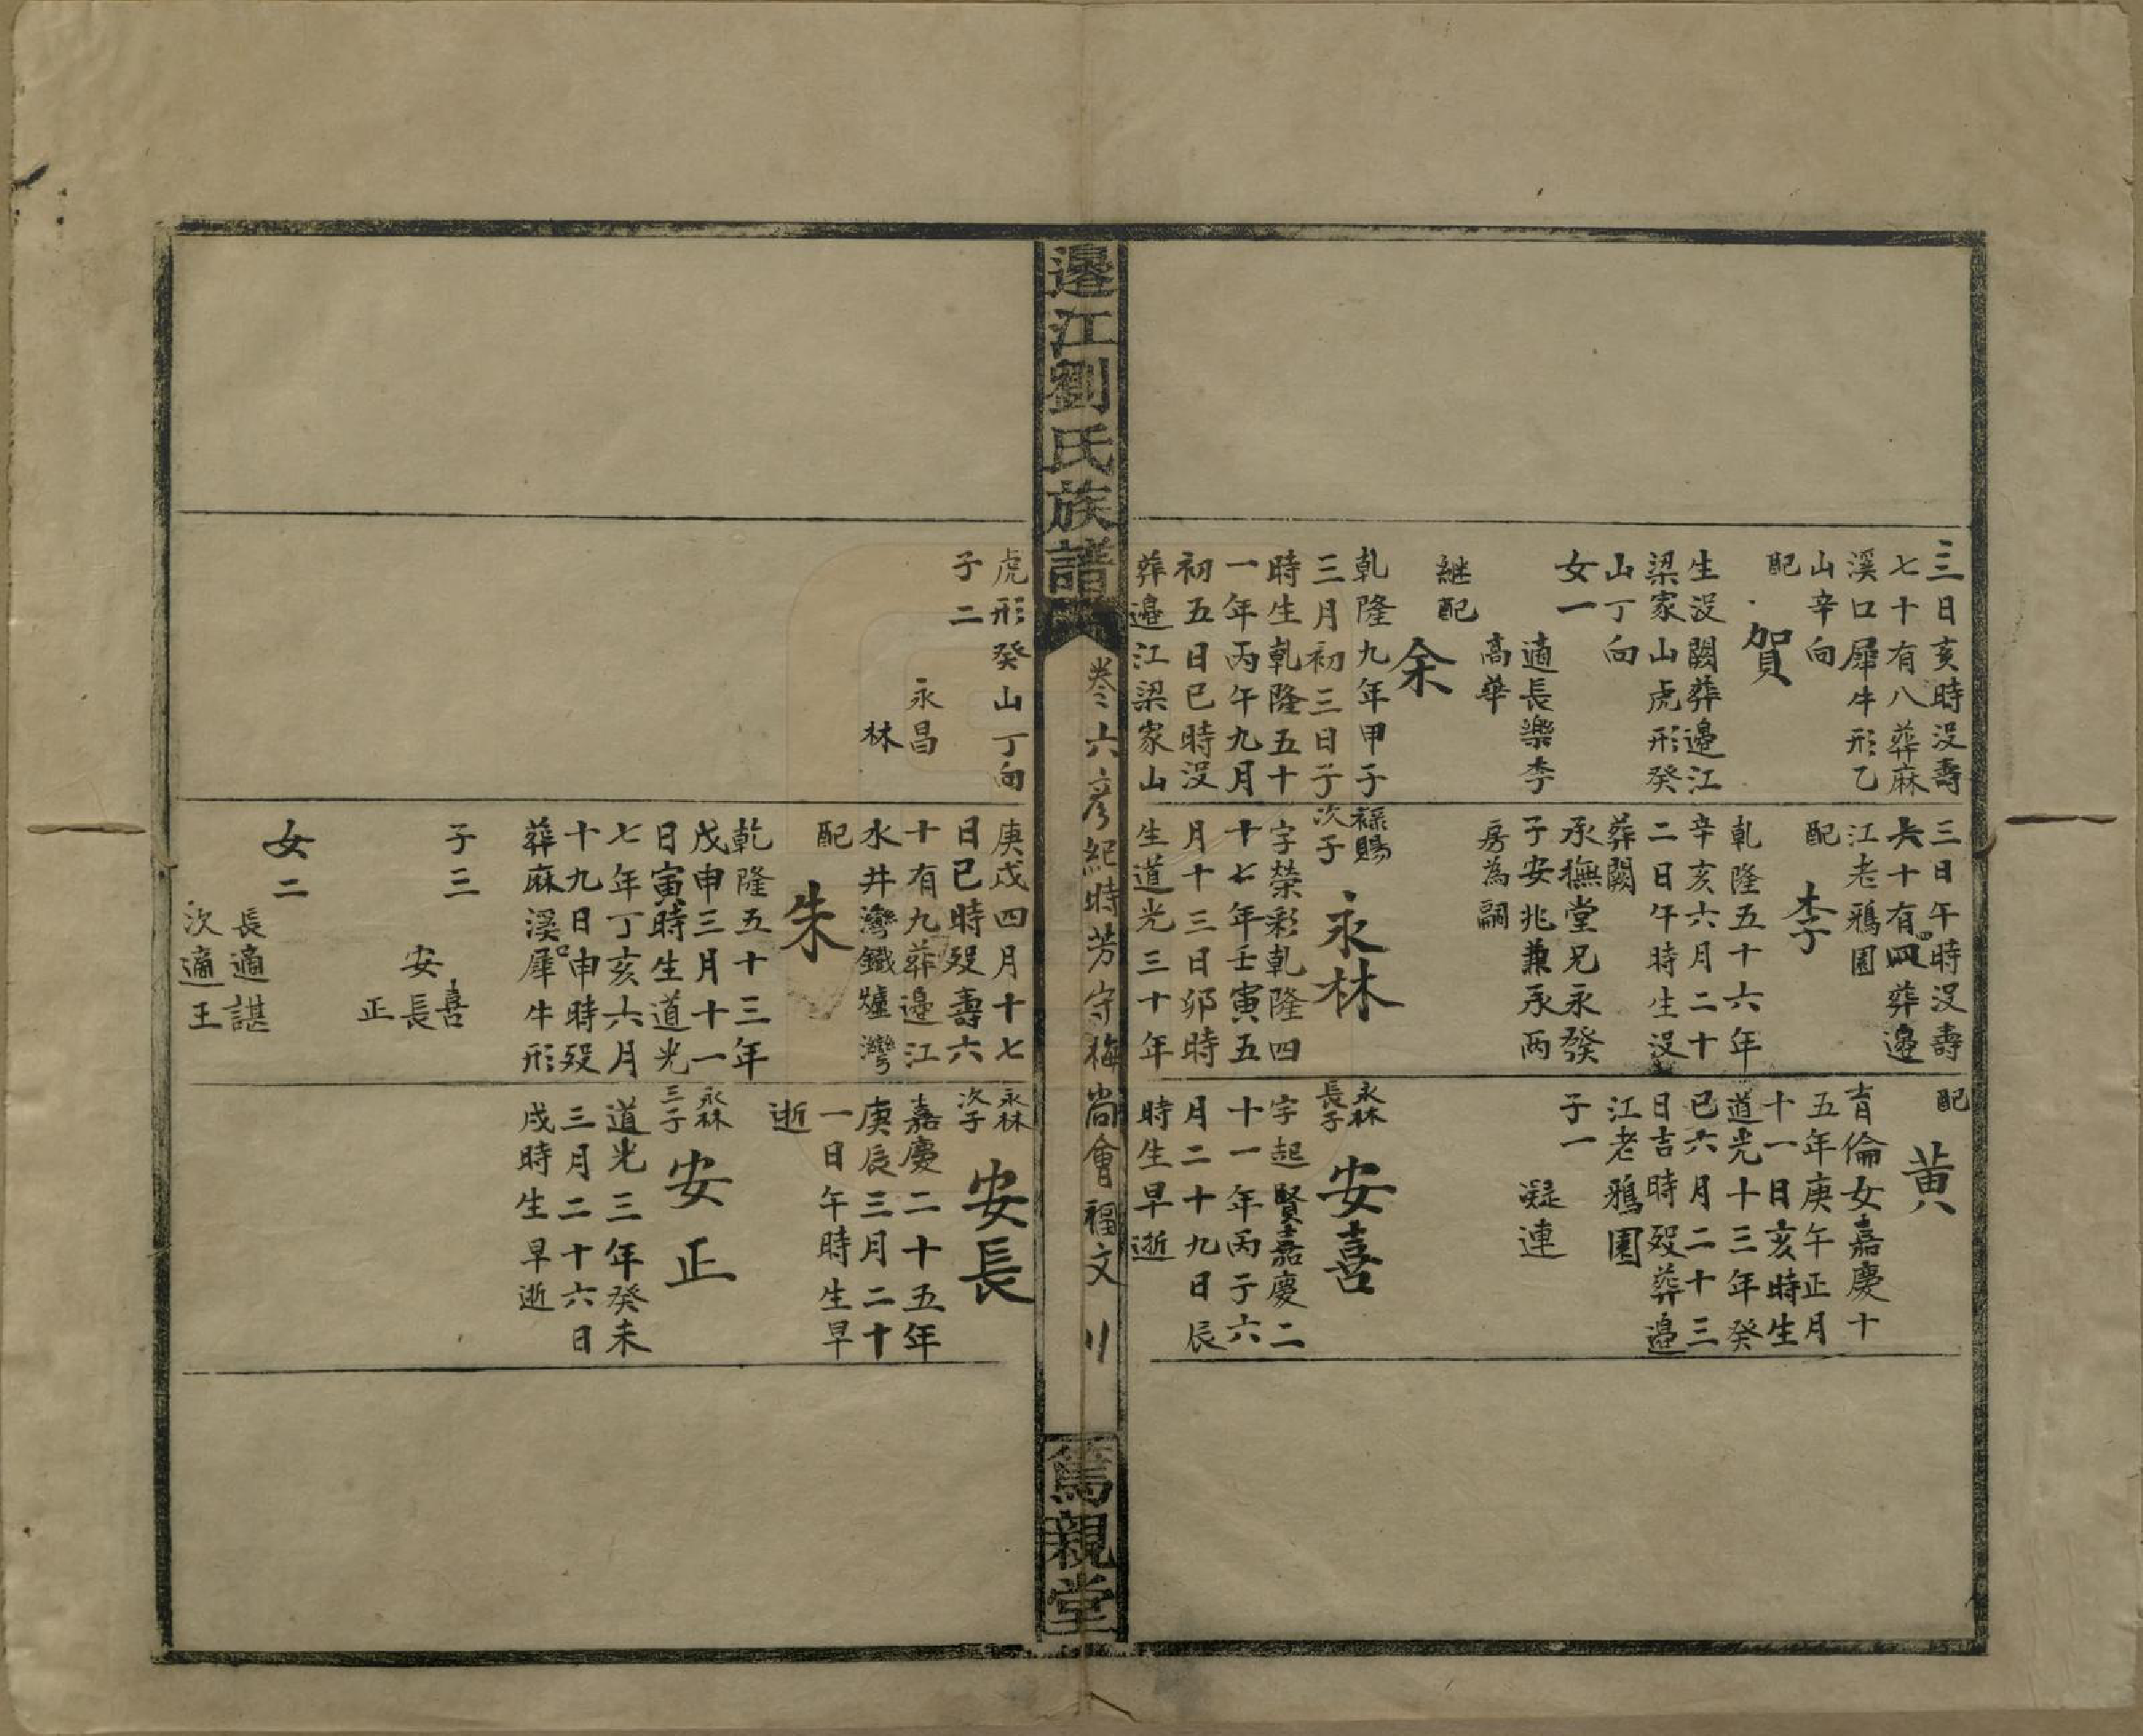 三日亥時没壽
七十有八葬麻
溪口犀牛形乙
山辛向
配
賀
生没闕葬邉江
梁家山虎形癸
山丁向
女一
適長樂李
高華
継配
余
乹隆九年甲子
三月初三日子
時生乹隆五十
一年丙午九月
初五日巳時没
葬邉江梁家山
三日午時没壽
六十有四葬邉
江老鴉園
配
李
乾隆五十六年
辛亥六月二十
二日午時生没
葬闕
承撫堂兄永發
子安兆兼承两
房為嗣
祿賜
次子
永林
字榮彩乹隆四
十七年壬寅五
月十三日卯時
生道光三十年
配
黄
倫女嘉慶十
五年庚午正月
十一日亥時生
道光十三年癸
巳六月二十三
日吉時殁葬邉
江老鴉園
子一
凝連
永林
長子
安喜
字起賢嘉慶二
十一年丙子六
月二十九日辰
時生早逝
邉江劉氏族譜
卷六
彦紀時芳守梅尚會福文
篤親堂
虎形癸山丁向
子二
永昌
林
庚戌四月十七
日巳時殁壽六
十有九葬邉江
水井灣鐵爐灣
配
朱
乾隆五十三年
戊申三月十一
日寅時生道光
七年丁亥六月
十九日申時殁
葬麻溪犀牛形
子三
喜
安長
正
女二
長適諶
次適王
永林
次子
安長
嘉慶二十五年
庚辰三月二十
一日午時生早
逝
永林
三子
安正
道光三年癸未
三月二十六日
戌時生早逝